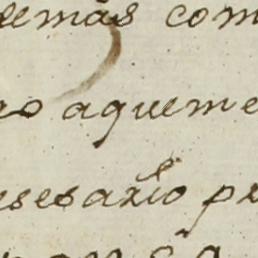 demás com
ro aqueme
esesario pr